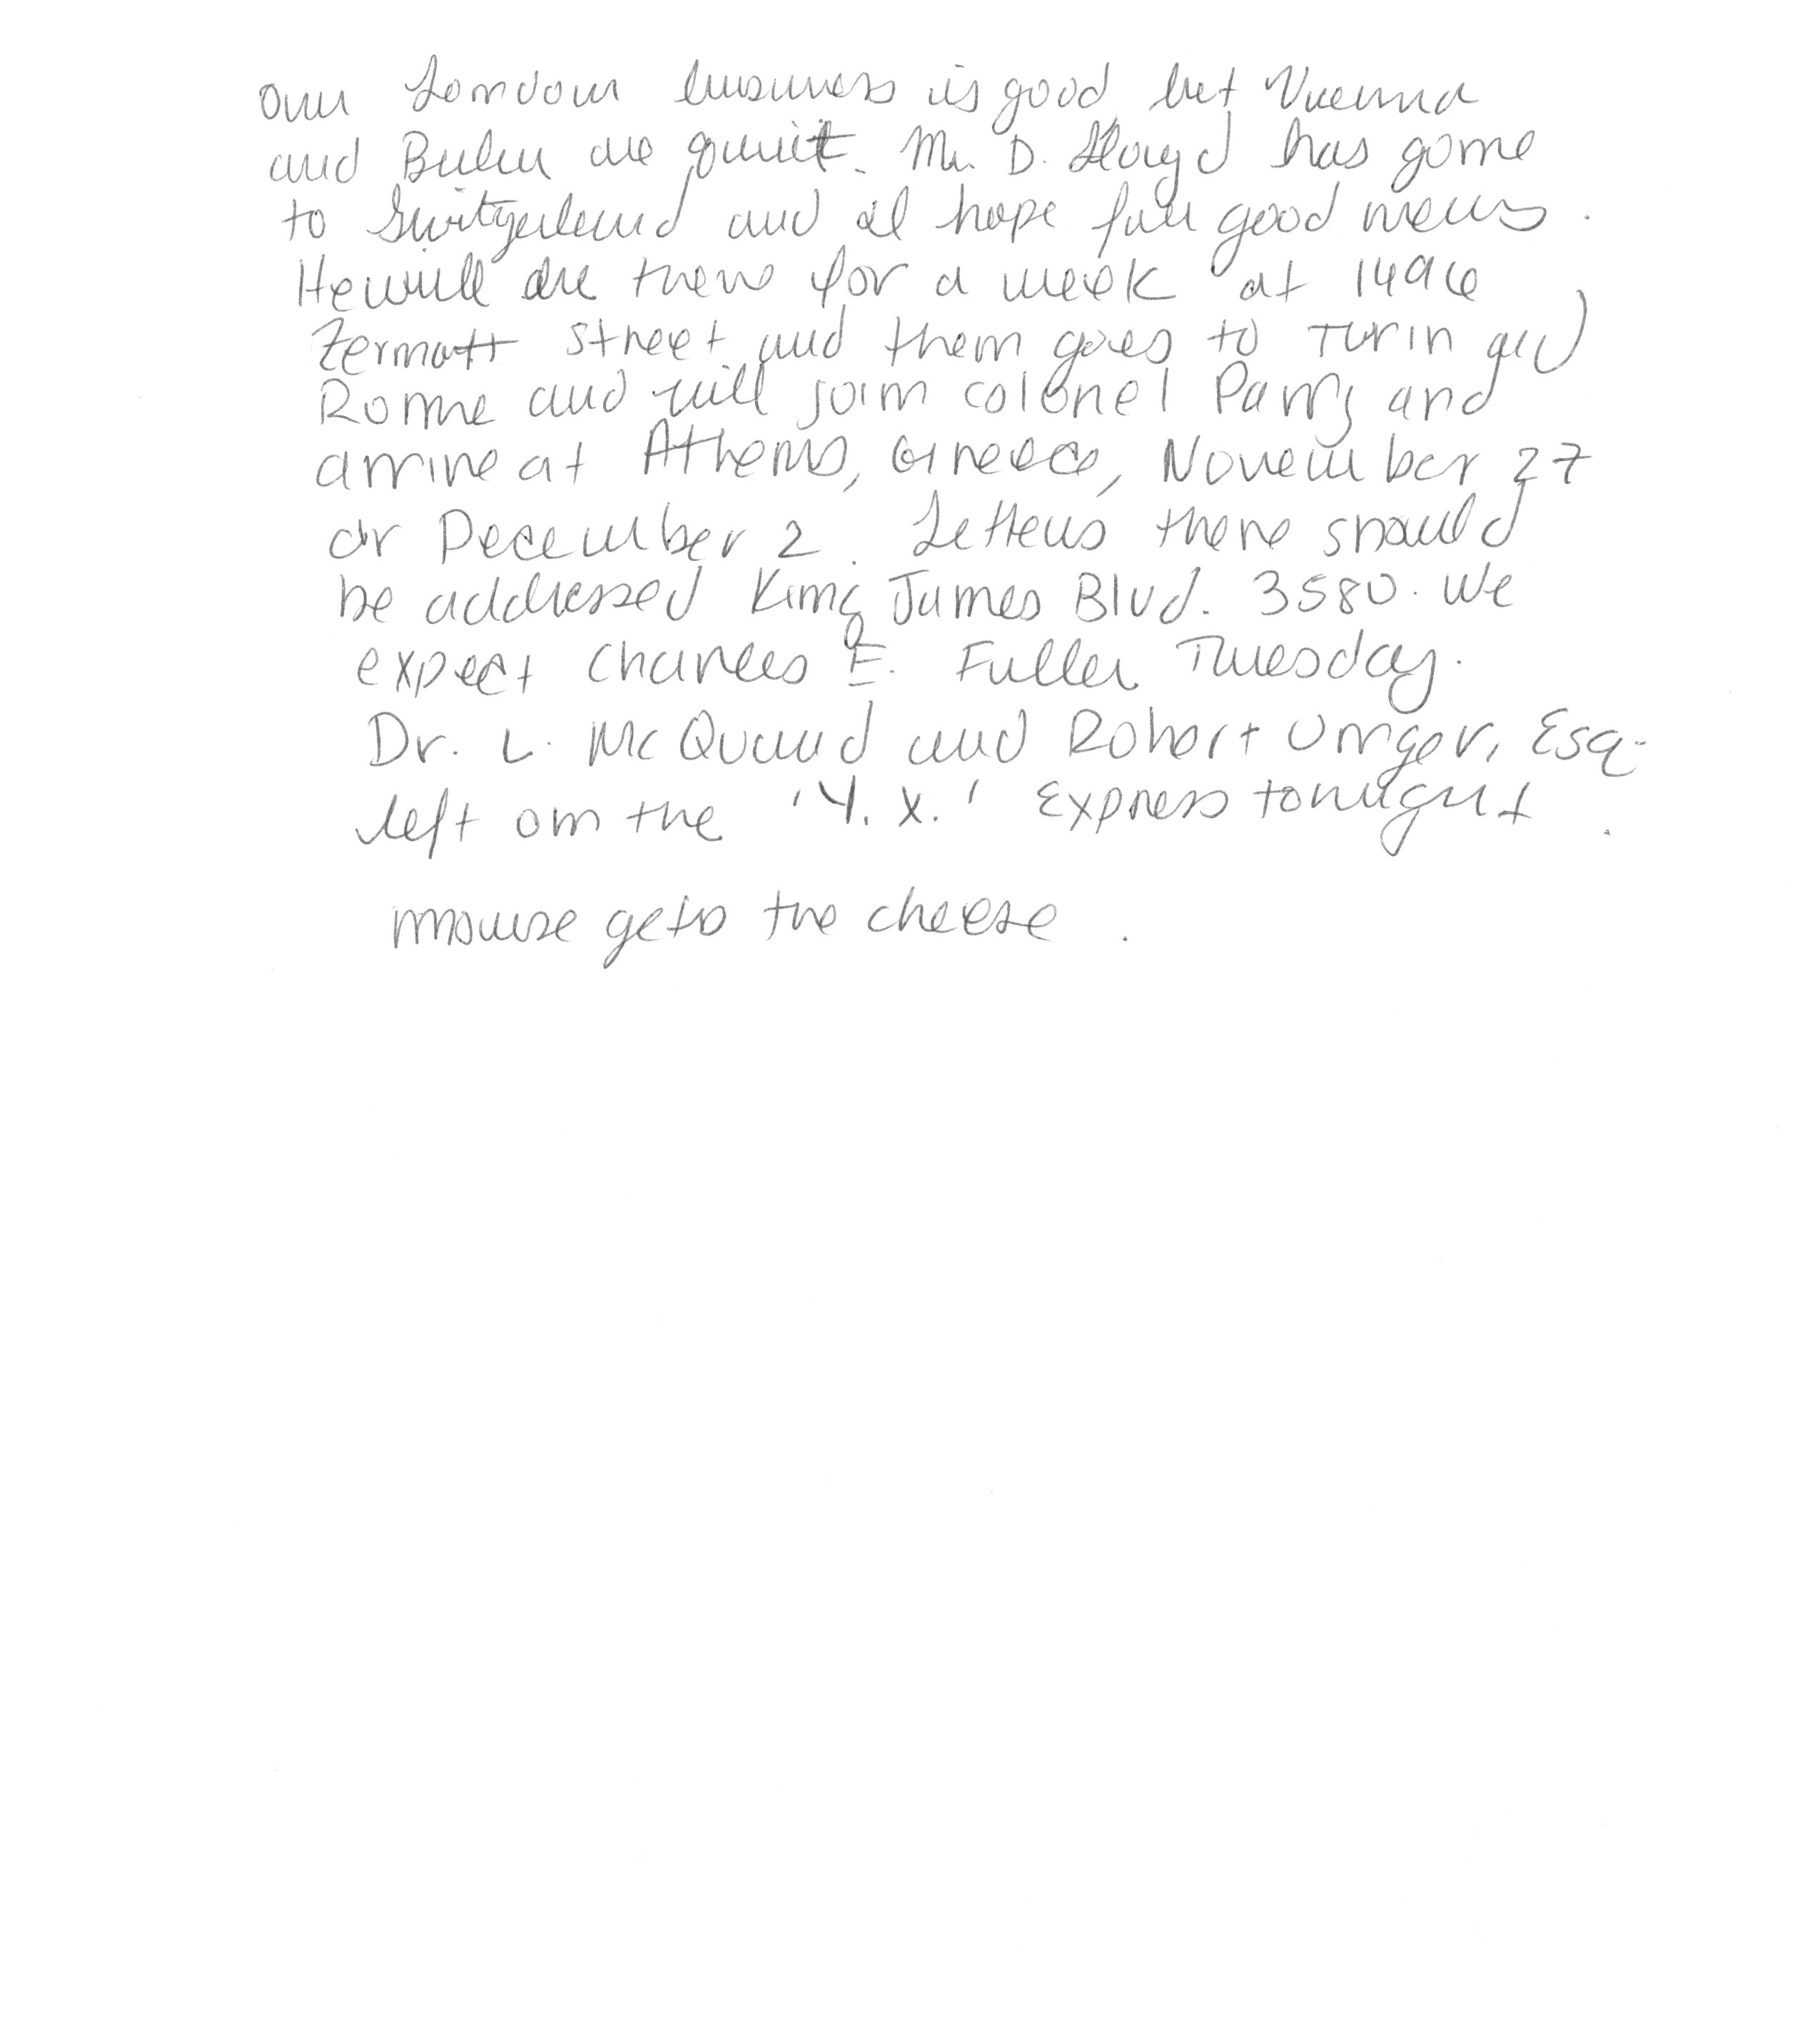 Our London business is good, but Vienna
and Berlin are quiet. Mr. D. Lloyd has gone
to Switzerland and I hope for good news.
He will be there for a week at 1496
Zermott Street and then goes to Turin and
Rome and will join Colonel Parry and
arrive at Athens, Greece, November 27
or December 2. Letters there should
be addressed King James Blvd. 3580. We
expect Charles E. Fuller Tuesday.
Dr. L. McQuaid and Robert Unger, Esq.
left on the 'Y. X.' Express tonight.
mouse gets the cheese.